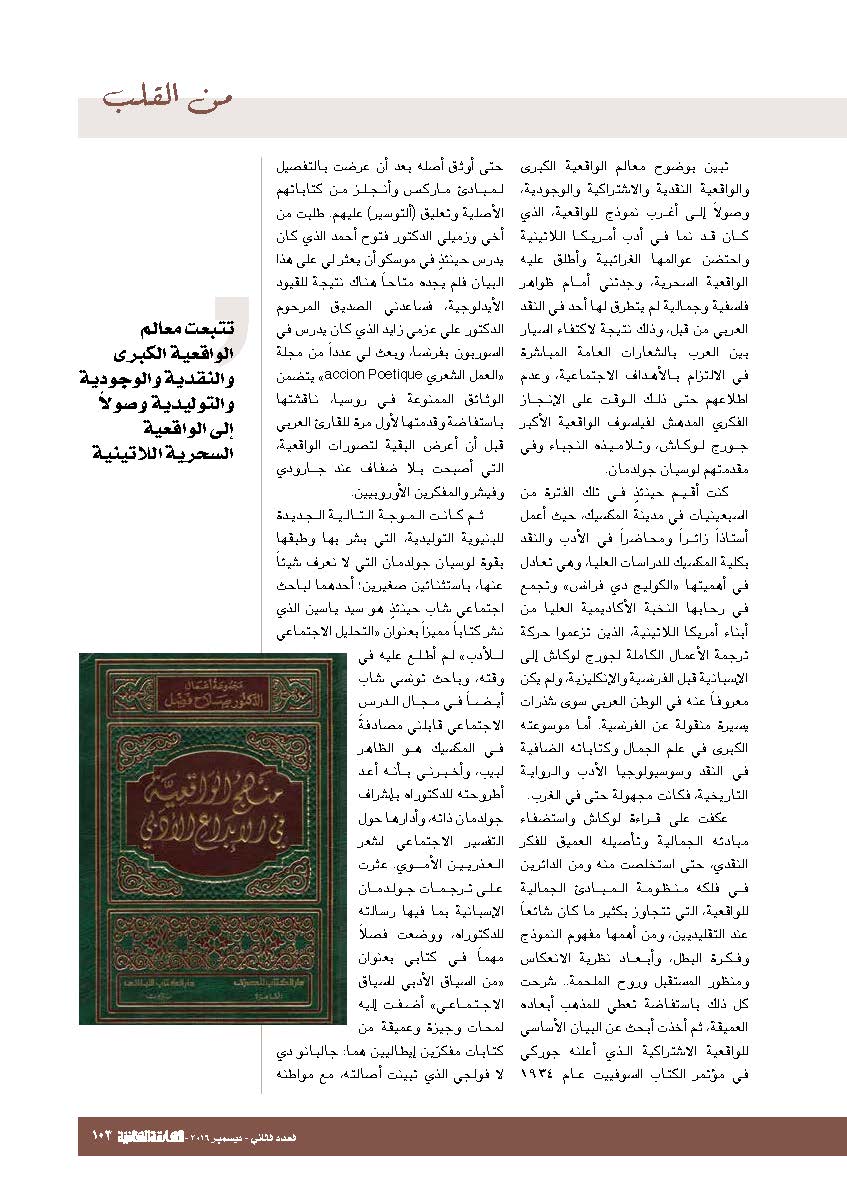 من القلب
تبين بوضوح معالم الواقعية الكبرى
والواقعية النقدية والاشتراكية والوجودية،
وصولاً إلى أغرب نموذج للواقعية، الذي
كان قد نما في أدب أمريكا اللاتينية
واحتضن عوالمها الغرائبية وأطلق عليه
الواقعية السحرية، وجدتني أمام ظواهر
فلسفية وجمالية لم يتطرق لها أحد في النقد
العربي من قبل، وذلك نتيجة لاكتفاء السيار
بين العرب بالشعارات العامة المباشرة
في الالتزام بالأهداف الاجتماعية، وعدم
اطلاعهم حتى ذلك الوقت على الإنجاز
الفكري المدهش لفيلسوف الواقعية الأكبر
جورج لوكاش، وتلاميذه النجباء وفي
مقدمتهم لوسيان جولدمان.
كنت أقيم حينئذٍ في تلك الفترة من
السبعينيات في مدينة المكسيك، حيث أعمل
أستاذاً زائراً ومحاضراً في الأدب والنقد
بكلية المكسيك للدراسات العليا، وهي تعادل
في أهميتها «الكوليج دي فرانس» وتجمع
في رحابها النخبة الأكاديمية العليا من
أبناء أمريكا اللاتينية، الذين تزعموا حركة
ترجمة الأعمال الكاملة لجورج لوكاش إلى
الإسبانية قبل الفرنسية والإنكليزية، ولم يكن
معروفاً عنه في الوطن العربي سوى شذرات
يسيرة منقولة عن الفرنسية. أما موسوعته
الكبرى في علم الجمال وكتاباته الضافية
في النقد وسوسيولوجيا الأدب والرواية
التاريخية، فكانت مجهولة حتى في الغرب.
عكفت على قراءة لوكاش واستصفاء
مبادئه الجمالية وتأصيله العميق للفكر
النقدي، حتى استخلصت منه ومن الدائرين
في فلكه منظومة المبادئ الجمالية
للواقعية، التي تتجاوز بكثير ما كان شائعاً
عند التقليديين، ومن أهمها مفهوم النموذج
وفكرة البطل، وأبعاد نظرية الانعكاس
ومنظور المستقبل وروح الملحمة.. شرحت
كل ذلك باستفاضة تعطي للمذهب أبعاده
العميقة، ثم أخذت أبحث عن البيان الأساسي
للواقعية الاشتراكية الذي أعلنه جوركي
في مؤتمر الكتاب السوفييت عام ١٩٣٤
حتى أوثق أصله بعد أن عرضت بالتفصيل
لمبادئ ماركس وأنجلز من كتاباتهم
الأصلية وتعليق (ألتوسير) عليهم. طلبت من
أخي وزميلي الدكتور فتوح أحمد الذي كان
يدرس حينئذٍ في موسكو أن يعثر لي على هذا
البيان فلم يجده متاحاً هناك نتيجة للقيود
الأيدلوجية، فساعدني الصديق المرحوم
الدكتور علي عزمي زايد الذي كان يدرس في
السوربون بفرنسا، وبعث لي عدداً من مجلة
«العمل الشعري accion Poetique» يتضمن
الوثائق الممنوعة في روسيا، ناقشتها
باستفاضة وقدمتها لأول مرة للقارئ العربي
قبل أن أعرض البقية لتصورات الواقعية،
التي أصبحت بلا ضفاف عند جارودي
وفيشر والمفكرين الأوروبيين.
ثم كانت الموجة التالية الجديدة
للبنيوية التوليدية، التي بشر بها وطبقها
بقوة لوسيان جولدمان التي لا نعرف شيئاً
عنها، باستثنائين صغيرين؛ أحدهما لباحث
اجتماعي شاب حينئذٍ هو سيد ياسين الذي
نشر كتاباً مميزاً بعنوان «التحليل الاجتماعي
للأدب» لم أطلع عليه في
وقته، وباحث تونسي شاب
أيضاً في مجال الدرس
الاجتماعي قابلني مصادفةً
في المكسيك هو الظاهر
لبيب، وأخبرني بأنه أعد
أطروحته للدكتوراه بإشراف
جولدمان ذاته، وأدارها حول
التفسير الاجتماعي لشعر
العذريين الأموي. عثرت
على ترجمات جولدمان
الإسبانية بما فيها رسالته
للدكتوراه، ووضعت فصلاً
مهماً في كتابي بعنوان
«من السياق الأدبي للسياق
الاجتماعي» أضفت إليه
لمحات وجيزة وعميقة من
كتابات مفكرَين إيطاليين هما: جالبانو دي
لا فولجي الذي تبينت أصالته، مع مواطنه
تتبعت معالم
الواقعية الكبرى
والنقدية والوجودية
والتوليدية وصولاً
إلى الواقعية
السحرية اللاتينية
مجموعة أعمال
الدكتور صلاح فضل
منهج الواقعية
في الإبداع الأدبي
دار الكتاب المصري
دار الكتاب اللبناني
العدد الثاني - ديسمبر ٢٠١٦ - الشارقة الثقافية ١٠٣